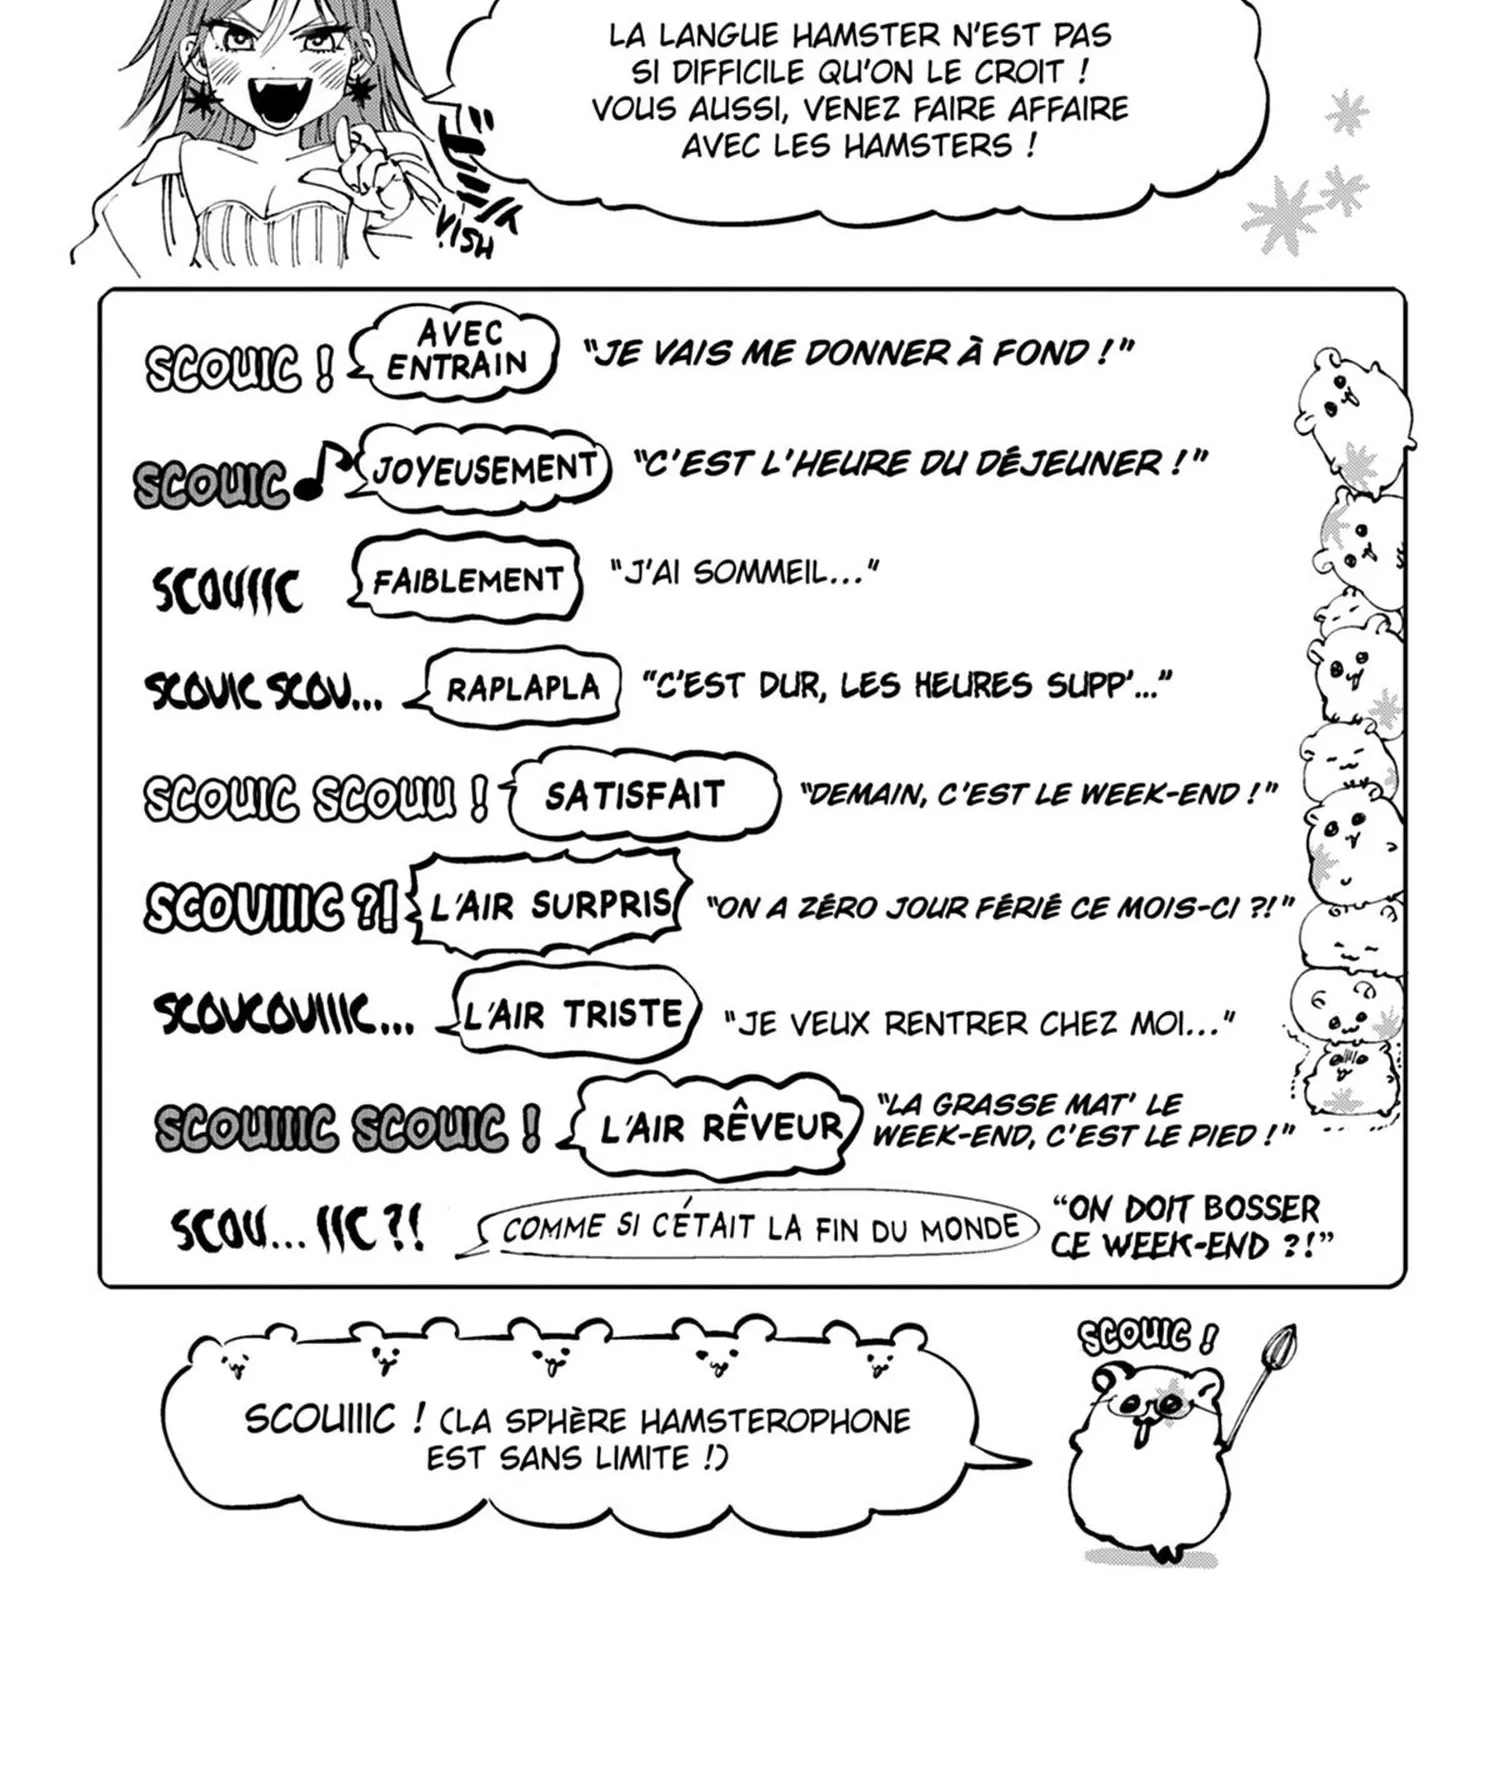 LA LANGUE HAMSTER N'EST PAS
SI DIFFICILE QU'ON LE CROIT !
VOUS AUSSI, VENEZ FAIRE AFFAIRE
AVEC LES HAMSTERS !
VISH
SCOUIC !
AVEC
ENTRAIN
"JE VAIS ME DONNER À FOND !"
SCOUIC
JOYEUSEMENT
"C'EST L'HEURE DU DÉJEUNER !"
SCOUIIC
FAIBLEMENT
"J'AI SOMMEIL..."
SCOUIC SCOU...
RAPLAPLA
"C'EST DUR, LES HEURES SUPP'..."
SCOUIC SCOUU !
SATISFAIT
"DEMAIN, C'EST LE WEEK-END !"
SCOUIIIC ?!
L'AIR SURPRIS
"ON A ZÉRO JOUR FÉRIÉ CE MOIS-CI ?!"
SCOUCOUIIIC...
L'AIR TRISTE
"JE VEUX RENTRER CHEZ MOI..."
SCOUIIIC SCOUIC !
L'AIR RÊVEUR
"LA GRASSE MAT' LE
WEEK-END, C'EST LE PIED !"
SCOU... IIC ?!
COMME SI C'ÉTAIT LA FIN DU MONDE
"ON DOIT BOSSER
CE WEEK-END ?!"
SCOUIC !
SCOUIIIC ! (LA SPHÈRE HAMSTEROPHONE
EST SANS LIMITE !)